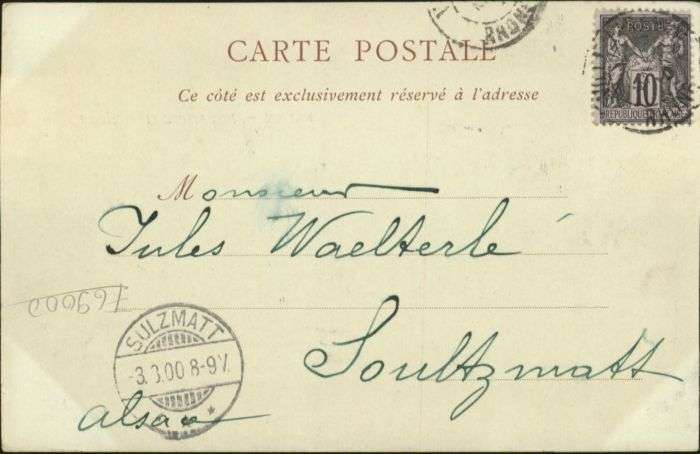 CARTE POSTALE
Ce côté est exclusivement réservé à l'adresse
POSTE
10
RHONE
Monsieur
Jules Waelterlé
Soultzmatt
Alsace
SULZMATT
-3.3.00 8-9V.
769000